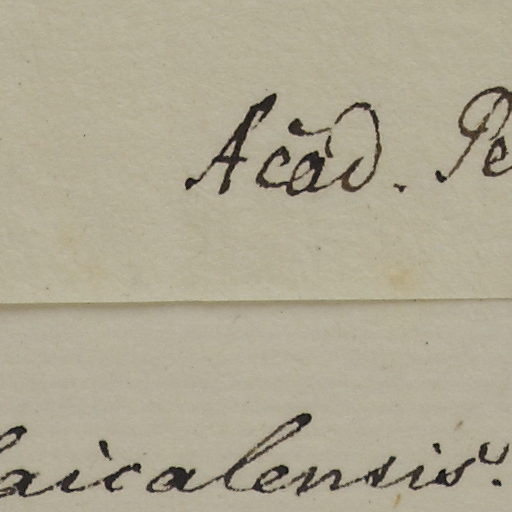 Acad. Pe
aicalensis.